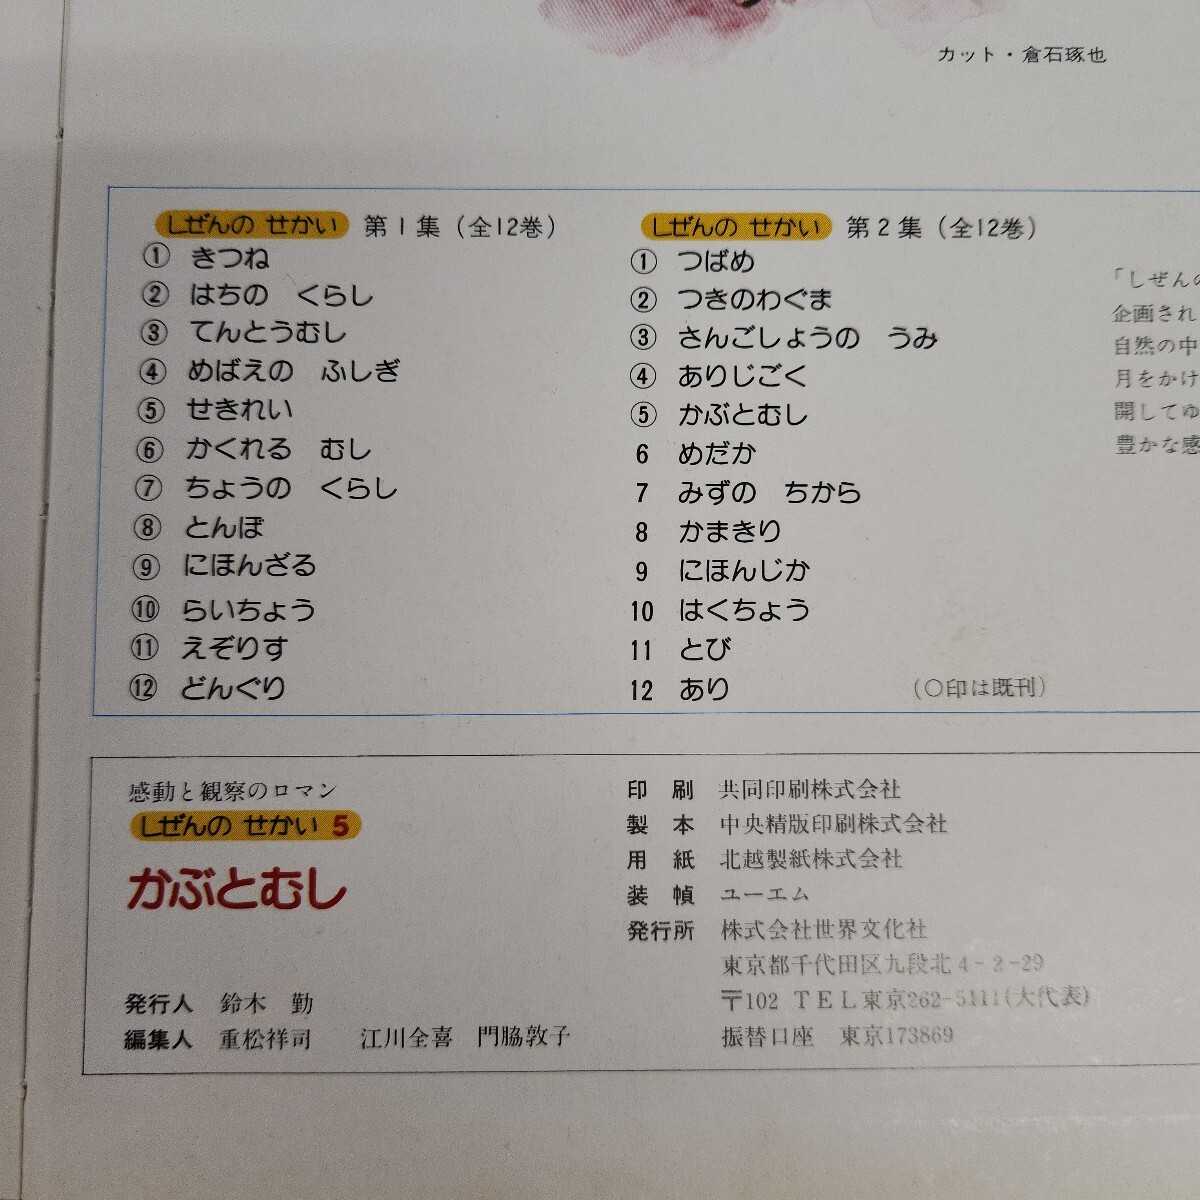 カット・倉石琢也
しぜんの せかい 第1集(全12巻)
① きつね
② はちの くらし
③ てんとうむし
④ めばえの ふしぎ
⑤ せきれい
⑥ かくれる むし
⑦ ちょうの くらし
⑧ とんぼ
⑨ にほんざる
⑩ らいちょう
⑪ えぞりす
⑫ どんぐり
しぜんの せかい 第2集(全12巻)
① つばめ
② つきのわぐま
③ さんごしょうの うみ
④ ありじごく
⑤ かぶとむし
6 めだか
7 みずの ちから
8 かまきり
9 にほんじか
10 はくちょう
11 とび
12 あり (○印は既刊)
「しぜんの
企画され
自然の中
月をかけ
開してゆ
豊かな感
感動と観察のロマン
しぜんの せかい 5
かぶとむし
発行人 鈴木 勤
編集人 重松祥司 江川全喜 門脇敦子
印 刷 共同印刷株式会社
製 本 中央精版印刷株式会社
用 紙 北越製紙株式会社
装 幀 ユーエム
発行所 株式会社世界文化社
東京都千代田区九段北4-2-29
〒102 TEL東京262-5111(大代表)
振替口座 東京173869